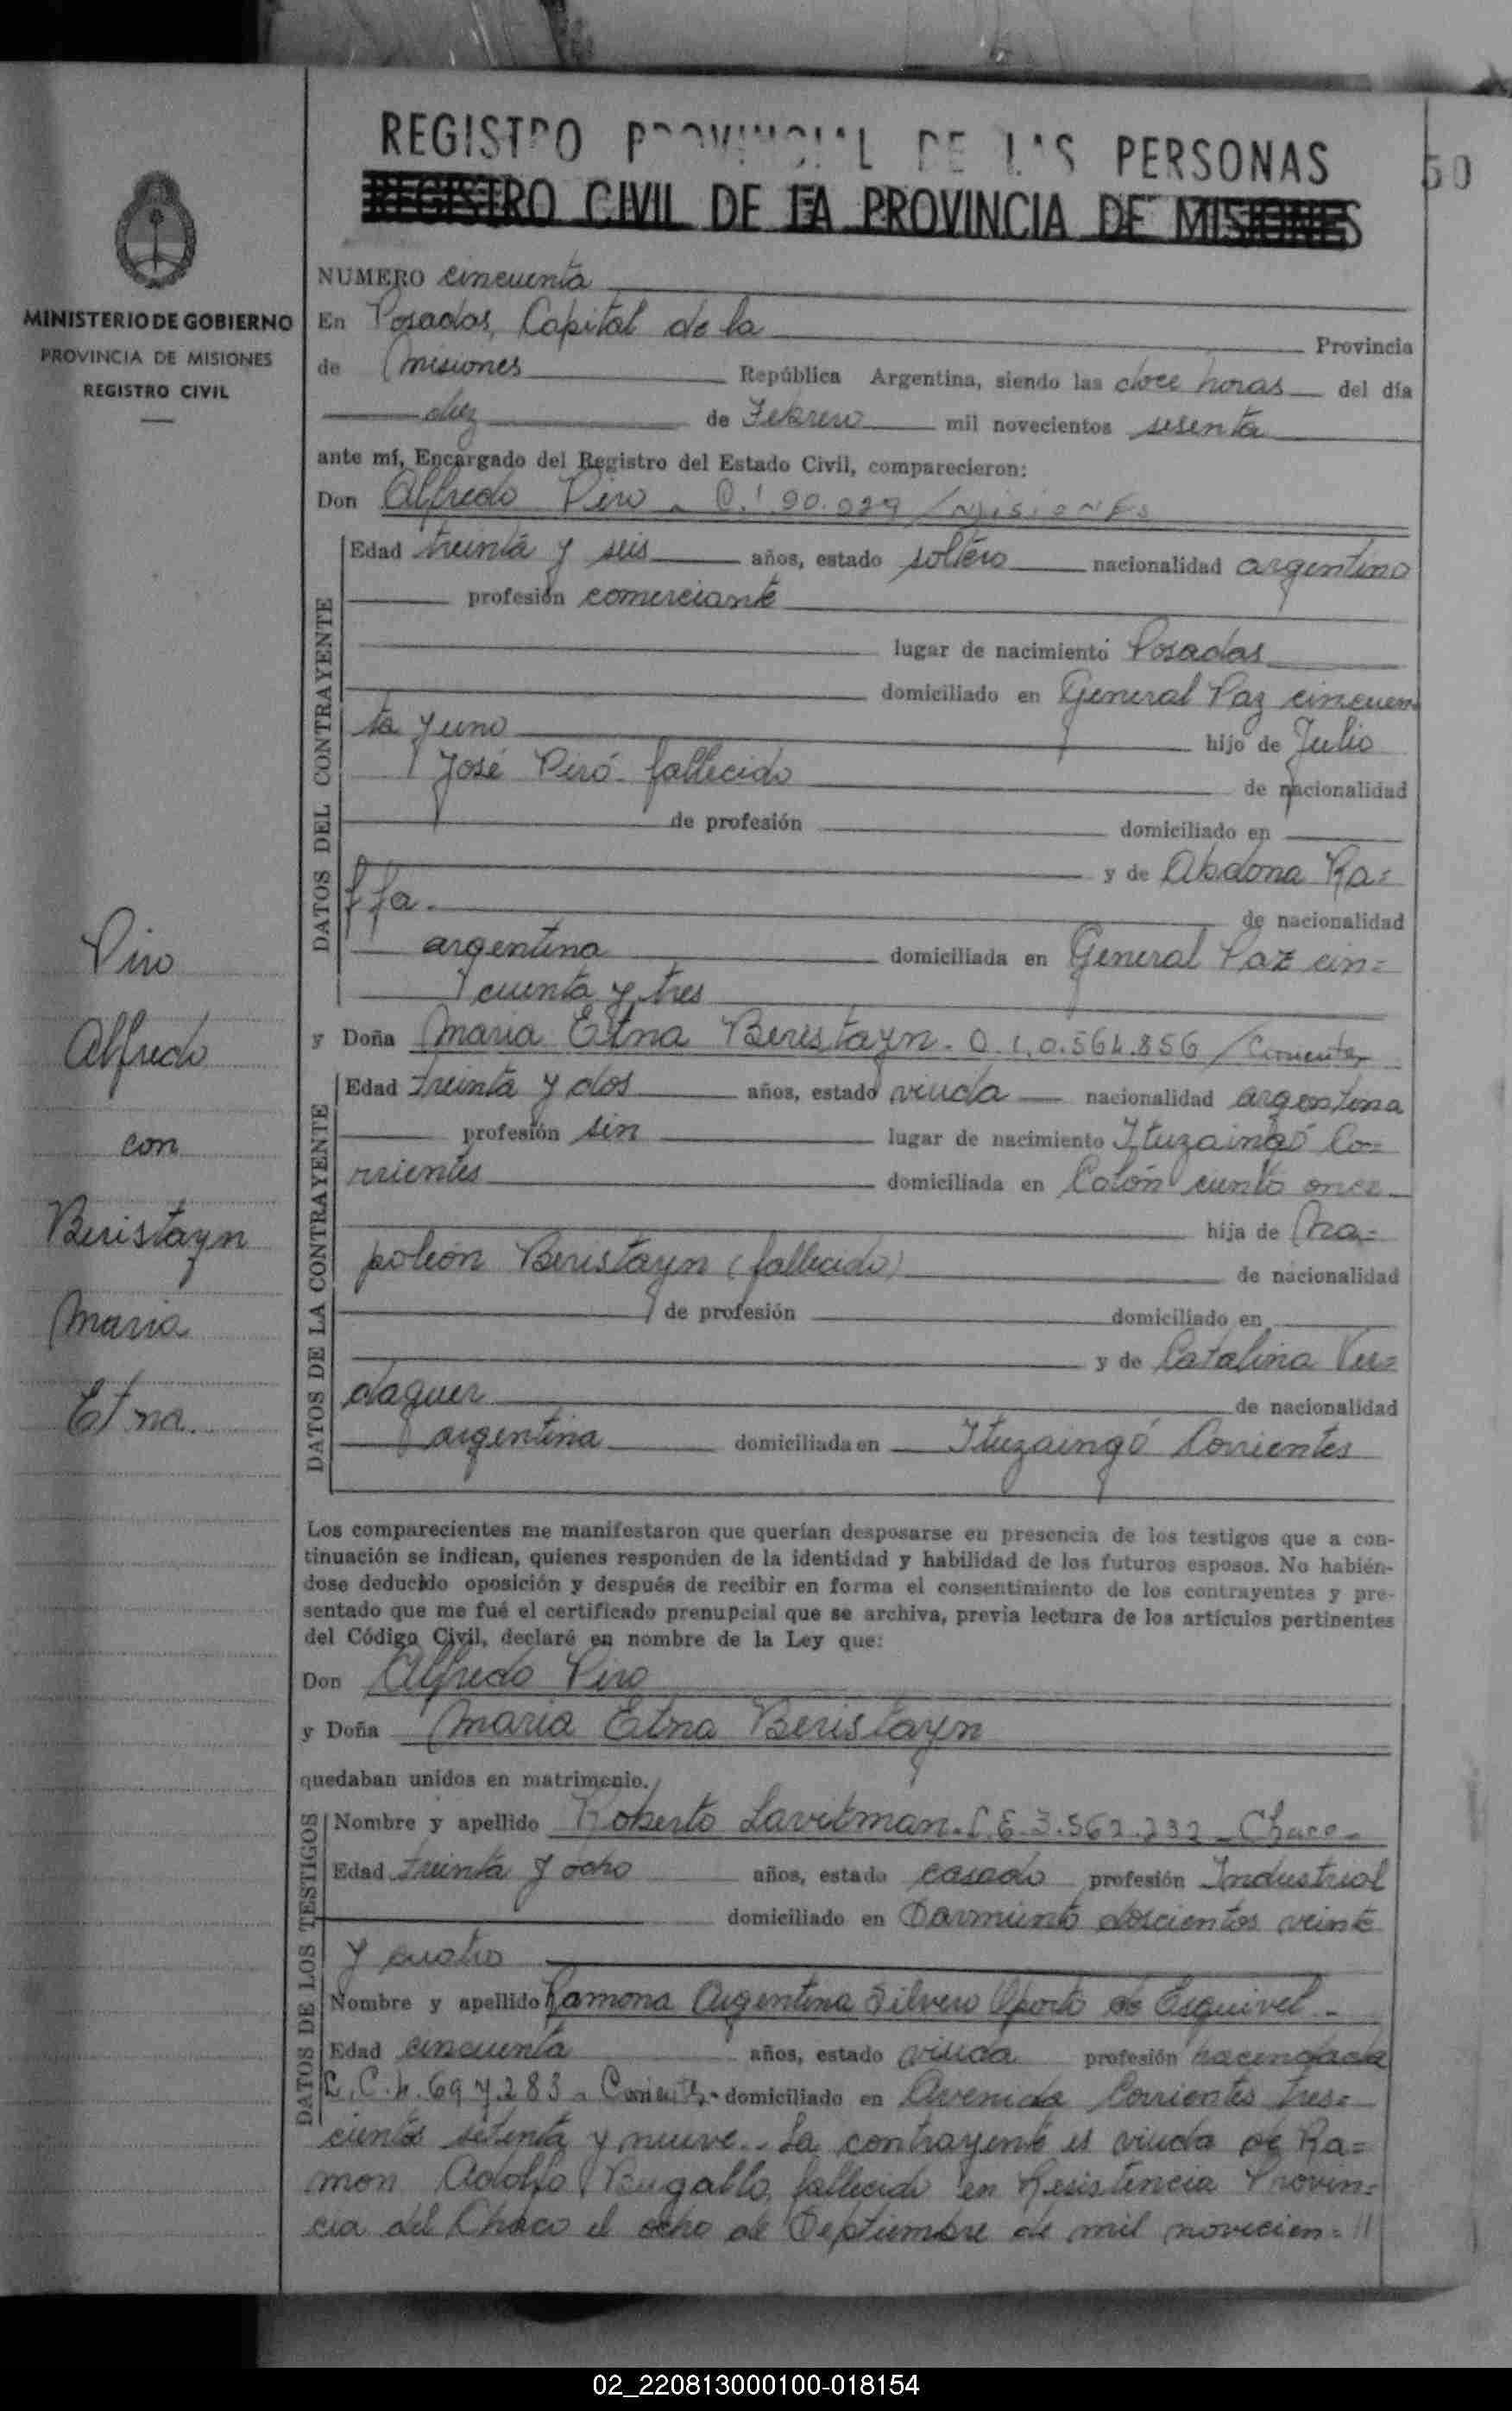 REGISTRO PROVINCIAL DE LAS PERSONAS
50
REGISTRO CIVIL DE LA PROVINCIA DE MISIONES
MINISTERIO DE GOBIERNO
PROVINCIA DE MISIONES
REGISTRO CIVIL
NUMERO cincuenta
En Posadas, Capital de la Provincia
de Misiones República Argentina, siendo las doce horas del día
diez de Febrero mil novecientos sesenta
ante mí, Encargado del Registro del Estado Civil, comparecieron:
Don Alfredo Piro - C.I 90.029 / MISIONES
DATOS DEL CONTRAYENTE
Edad treinta y seis años, estado soltero nacionalidad argentino
profesión comerciante
lugar de nacimiento Posadas
domiciliado en General Paz cincuen
ta y uno hijo de Julio
José Piró - fallecido de nacionalidad
de profesión domiciliado en
y de Abdona Ra=
ffa. de nacionalidad
argentina domiciliada en General Paz cin=
cuenta y tres
y Doña Maria Etna Beristayn. 0.564.856 / Corrientes
DATOS DE LA CONTRAYENTE
Edad treinta y dos años, estado viuda nacionalidad argentina
profesión sin lugar de nacimiento Ituzaingó Co=
rrientes domiciliada en Colón ciento once
hija de Na=
poleón Beristayn (fallecido) de nacionalidad
de profesión domiciliado en
y de Catalina Ver=
daguer de nacionalidad
argentina domiciliada en Ituzaingó Corrientes
Piro
Alfredo
con
Beristayn
Maria
Etna
Los comparecientes me manifestaron que querían desposarse en presencia de los testigos que a con-
tinuación se indican, quienes responden de la identidad y habilidad de los futuros esposos. No habién-
dose deducido oposición y después de recibir en forma el consentimiento de los contrayentes y pre-
sentado que me fué el certificado prenupcial que se archiva, previa lectura de los artículos pertinentes
del Código Civil, declaré en nombre de la Ley que:
Don Alfredo Piro
y Doña Maria Etna Beristayn
quedaban unidos en matrimonio.
DATOS DE LOS TESTIGOS
Nombre y apellido Roberto Lavitman. L.E 3.562.232 - Chaco -
Edad treinta y ocho años, estado casado profesión Industrial
domiciliado en Sarmiento doscientos veinte
y cuatro
Nombre y apellido Ramona Argentina Silvero Oporto de Esquivel -
Edad cincuenta años, estado viuda profesión hacendada
L.C. Corrientes - domiciliado en Avenida Corrientes tres=
cientos setenta y nueve.. La contrayente es viuda de Ra=
mon Adolfo Bugallo, fallecido en Resistencia Provin=
cia del Chaco el ocho de Septiembre de mil novecien= //
02_220813000100-018154